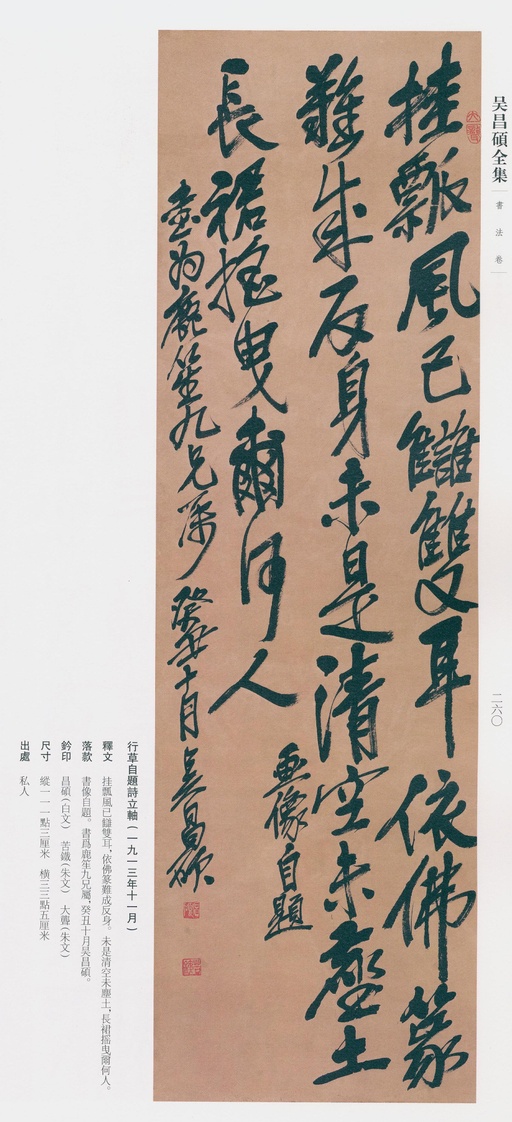 吴昌碩全集
書法卷
二六〇
挂瓢風已讎雙耳依佛篆
難成反身未是清空未塵土
長裙搖曳爾何人
畫像自題
書为鹿笙九兄屬癸丑十月吴昌碩
行草自題詩立軸（一九一三年十一月）
釋文 挂瓢風已讎雙耳，依佛篆難成反身。未是清空未塵土，長裙摇曳爾何人。
落款 書像自題。書爲鹿笙九兄屬，癸丑十月吴昌碩。
鈐印 昌碩（白文） 苦鐵（朱文） 大聾（朱文）
尺寸 縱一一一點三厘米 横三三點五厘米
出處 私人